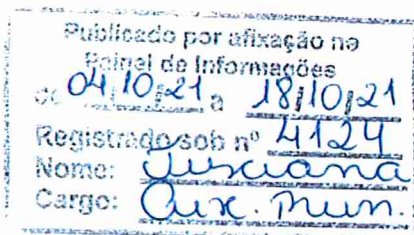 Publicado por afixação no
Painel de Informações
de 04/10/21 a 18/10/21
Registrado sob nº 4124
Nome: Jusciana
Cargo: Aux. Mun.